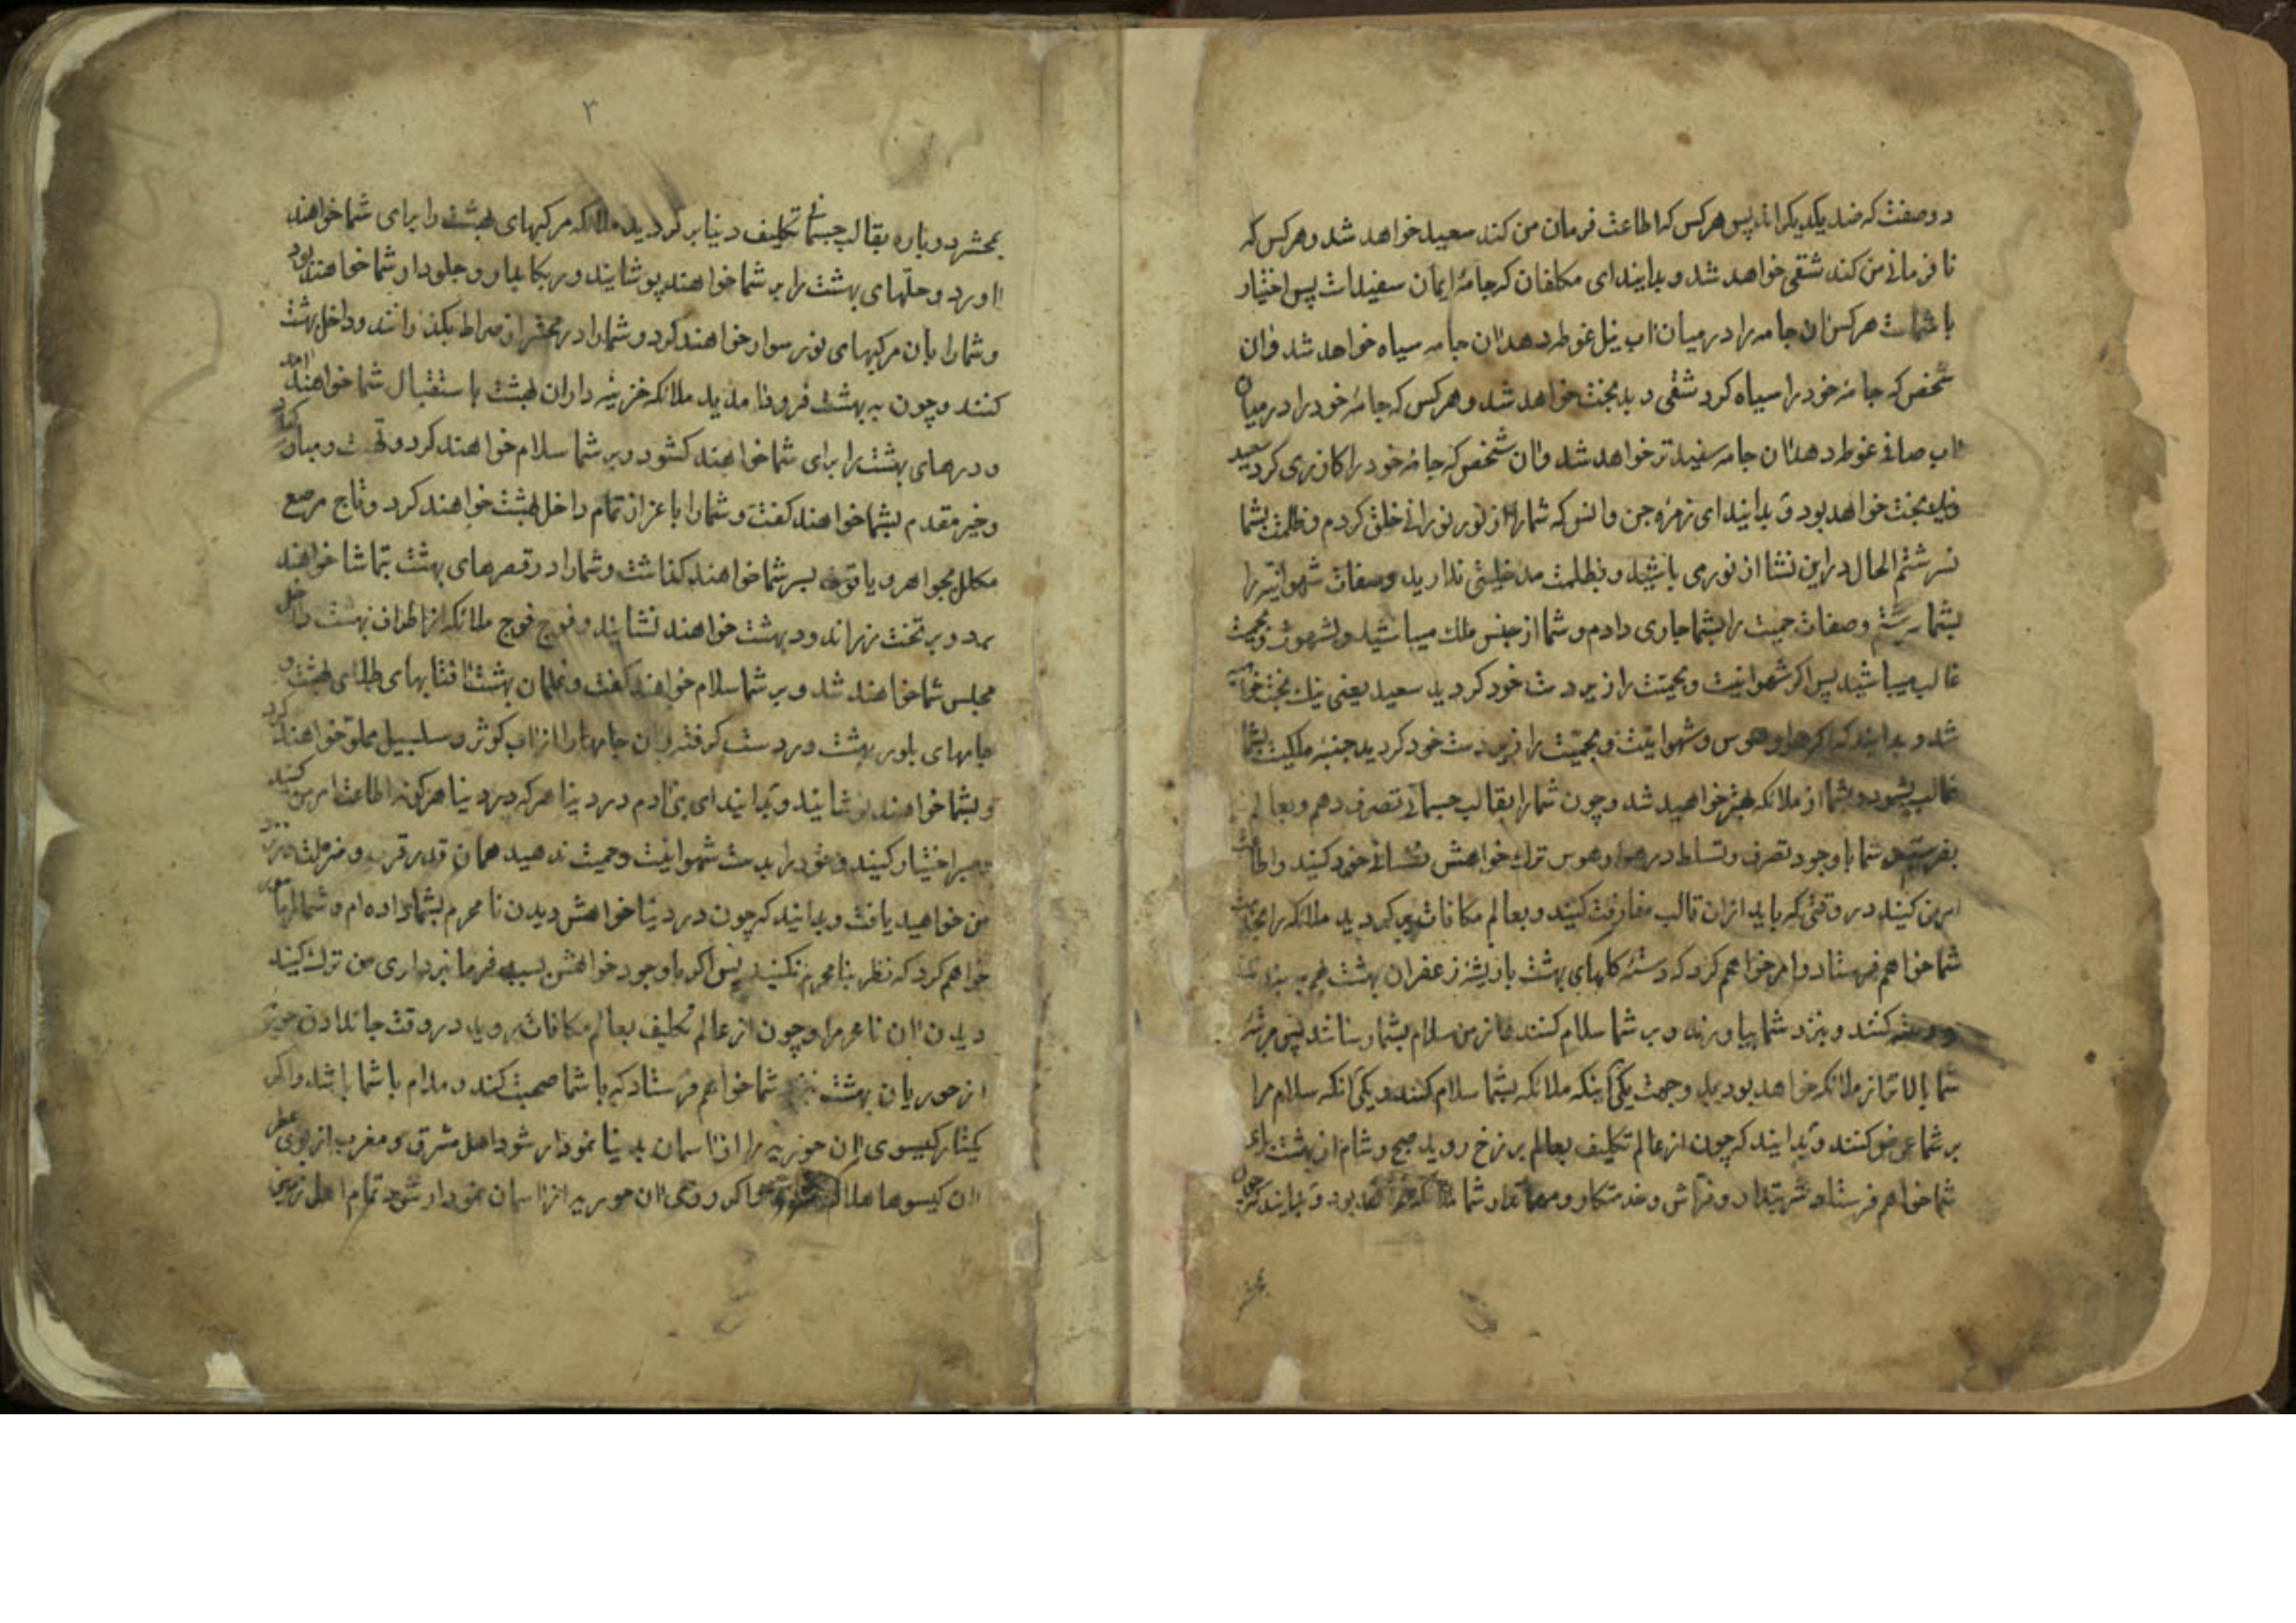 دو صفت که ضد یکدیکراند پس هرکس که اطاعت فرمان من کند سعید خواهد شد و هرکس که
نافرمانی من کند شقی خواهد شد و بدانید ای مکلفان که جامهٔ ایمان سفید است پس اختیار
با شماست هرکس ان جامه را در میان اب نیل غوطه دهد ان جامه سیاه خواهد شد و ان
شخص که جامهٔ خود را سیاه کرد شقی و بدبخت خواهد شد و هرکس که جامهٔ خود را در میان
اب صافی غوطه دهد ان جامه سفیدتر خواهد شد و ان شخص که جامهٔ خود را کازری کرد سعید
و نیکبخت خواهد بود و بدانید ای زمرهٔ جن و انس که شما را از نور نورانی خلق کردم و ظلمت بشما
نسرشتم الحال در این نشا از نوری باشید و بظلمت مدخلیتی ندارید و صفات شهوانیته را
بشما سرشتم و صفات حمیت را بشما جاری دادم و شما از جنس ملک میباشید و لشهوت و حمیت
غالب میباشید پس اکر شهوانیت و حمیت را زیردست خود کردید سعید یعنی نیک بخت خواهید
شد و بدانید که اکر هوا و هوس و شهوانیت و حمیت را زیردست خود کردید جنبهٔ ملکیت بشما
غالب بشود و شما از ملائکه بهتر خواهید شد و چون شما را بقالب جسمانی تصرف دهم و بعالم
بفرستم شما با وجود تصرف و تسلط در هوا و هوس ترک خواهش نفسانی خود کنید و اطاعت
امر من کنید در وقتی که باید از ان قالب مفارقت کنید و بعالم مکافات برکردید ملائکه را بخدمت
شما خواهم فرستاد و امر خواهم کرد که دستهٔ کلهای بهشت با ریشهٔ زعفران بهشت
و دسته کنند و بنزد شما بیاورند و بر شما سلام کنند و از من سلام بشما رسانند پس مرتبهٔ
شما بالاتر از ملائکه خواهد بود بدو جهت یکی انکه ملائکه بشما سلام کنند و یکی انکه سلام مرا
بر شما عرض کنند و بدانید که چون از عالم تکلیف بعالم برزخ روید صبح و شام از بهشت برای
شما خواهم فرستاد و فراش و خدمتکار و مهماندار شما بود و بدانید که چون
بمحشر
۳
بمحشر دوباره بقالب جسمانی تکلیف دنیا برکردید ملائکه مرکبهای بهشت را برای شما خواهند
اورد و حلّهای بهشت را بر شما خواهند پوشانید و رکابدار و جلودار شما خواهند بود
و شما را بان مرکبهای نور سوار خواهند کرد و شما را در محشر از صراط بکذرانند و داخل بهشت
کنند و چون به بهشت فرود امدید ملائکه خزینه داران بهشت باستقبال شما خواهند امد
و درهای بهشت را برای شما خواهند کشود و بر شما سلام خواهند کرد و تهنیت و مبارکباد
و خیر مقدم بشما خواهند کفت و شما را باعزاز تمام داخل بهشت خواهند کرد و تاج مرصع
مکلل بجواهر و یاقوت بسر شما خواهند کذاشت و شما را در قصرهای بهشت بتماشا خواهند
برد و بر تخت زر اندود بهشت خواهند نشانید و فوج فوج ملائکه از اطراف بهشت داخل
مجلس شما خواهند شد و بر شما سلام خواهند کفت و غلمان بهشت افتابهای طلای بهشت و
جامهای بلور بهشت در دست کرفته و ان جامها را از اب کوثر و سلسبیل مملو خواهند کرد
و بشما خواهند نوشانید و بدانید ای بنی ادم در دنیا هرکه در دنیا هرکونه اطاعت امر من کنید
و صبر اختیار کنید و خود را بدست شهوانیت و حمیت ندهید همان قدر قرب و منزلت در نزد
من خواهید یافت و بدانید که چون در دنیا خواهش دیدن نامحرم بشما داده ام و شما را مامور
خواهم کرد که نظر بنامحرم نکنید پس اکر با وجود خواهش بسبب فرمانبرداری من ترک کنید
دیدن ان نامحرم را و چون از عالم تکلیف بعالم مکافات بروید در وقت جاندادن حوریه
از حوریان بهشت بنزد شما خواهم فرستاد که با شما صحبت کند و مدام با شما باشد و اکر
یکتار کیسوی ان حوریه را از اسمان بدنیا نمودار شود اهل مشرق و مغرب از بوی عطر
ان کیسوها هلاک و اکر روی ان حوریه از اسمان نمودار شود تمام اهل زمین